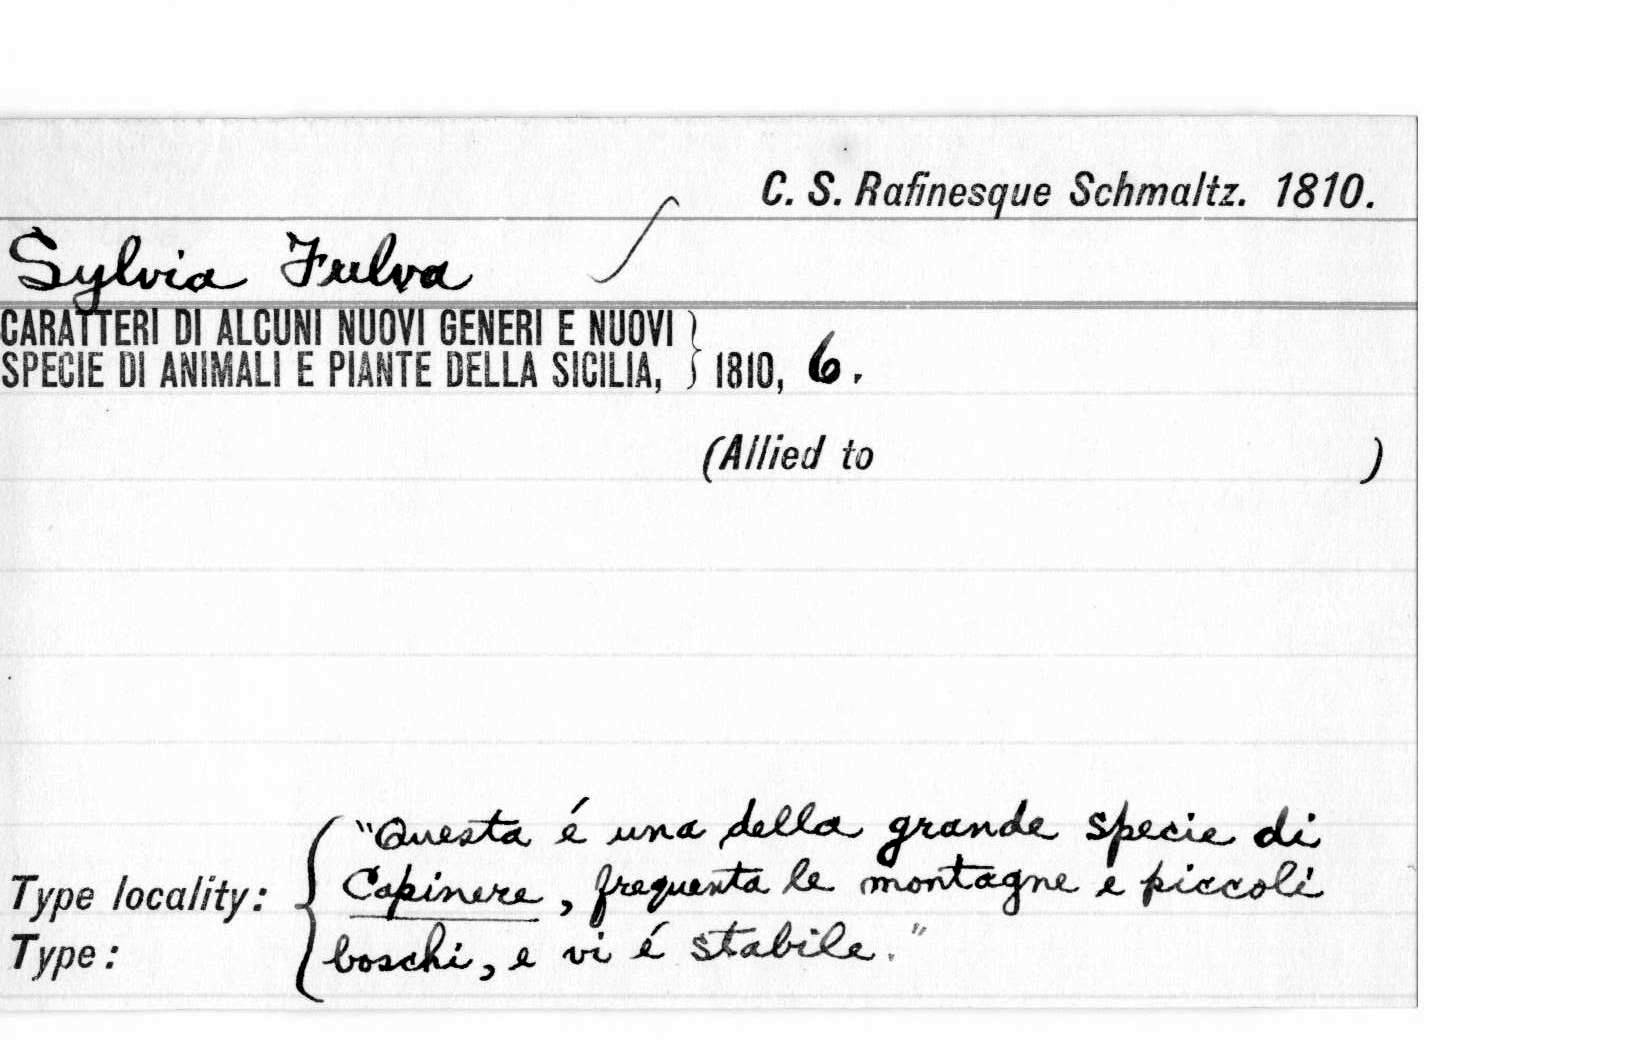 C. S. Rafinesque Schmaltz. 1810.
Sylvia Fulva
CARATTERI DI ALCUNI NUOVI GENERI E NUOVI
SPECIE DI ANIMALI E PIANTE DELLA SICILIA, } 1810, 6.
(Allied to )
"Questa é una della grande specie di
Type locality: { Capinere, frequenta le montagne e piccoli
Type: boschi, e vi é stabile."